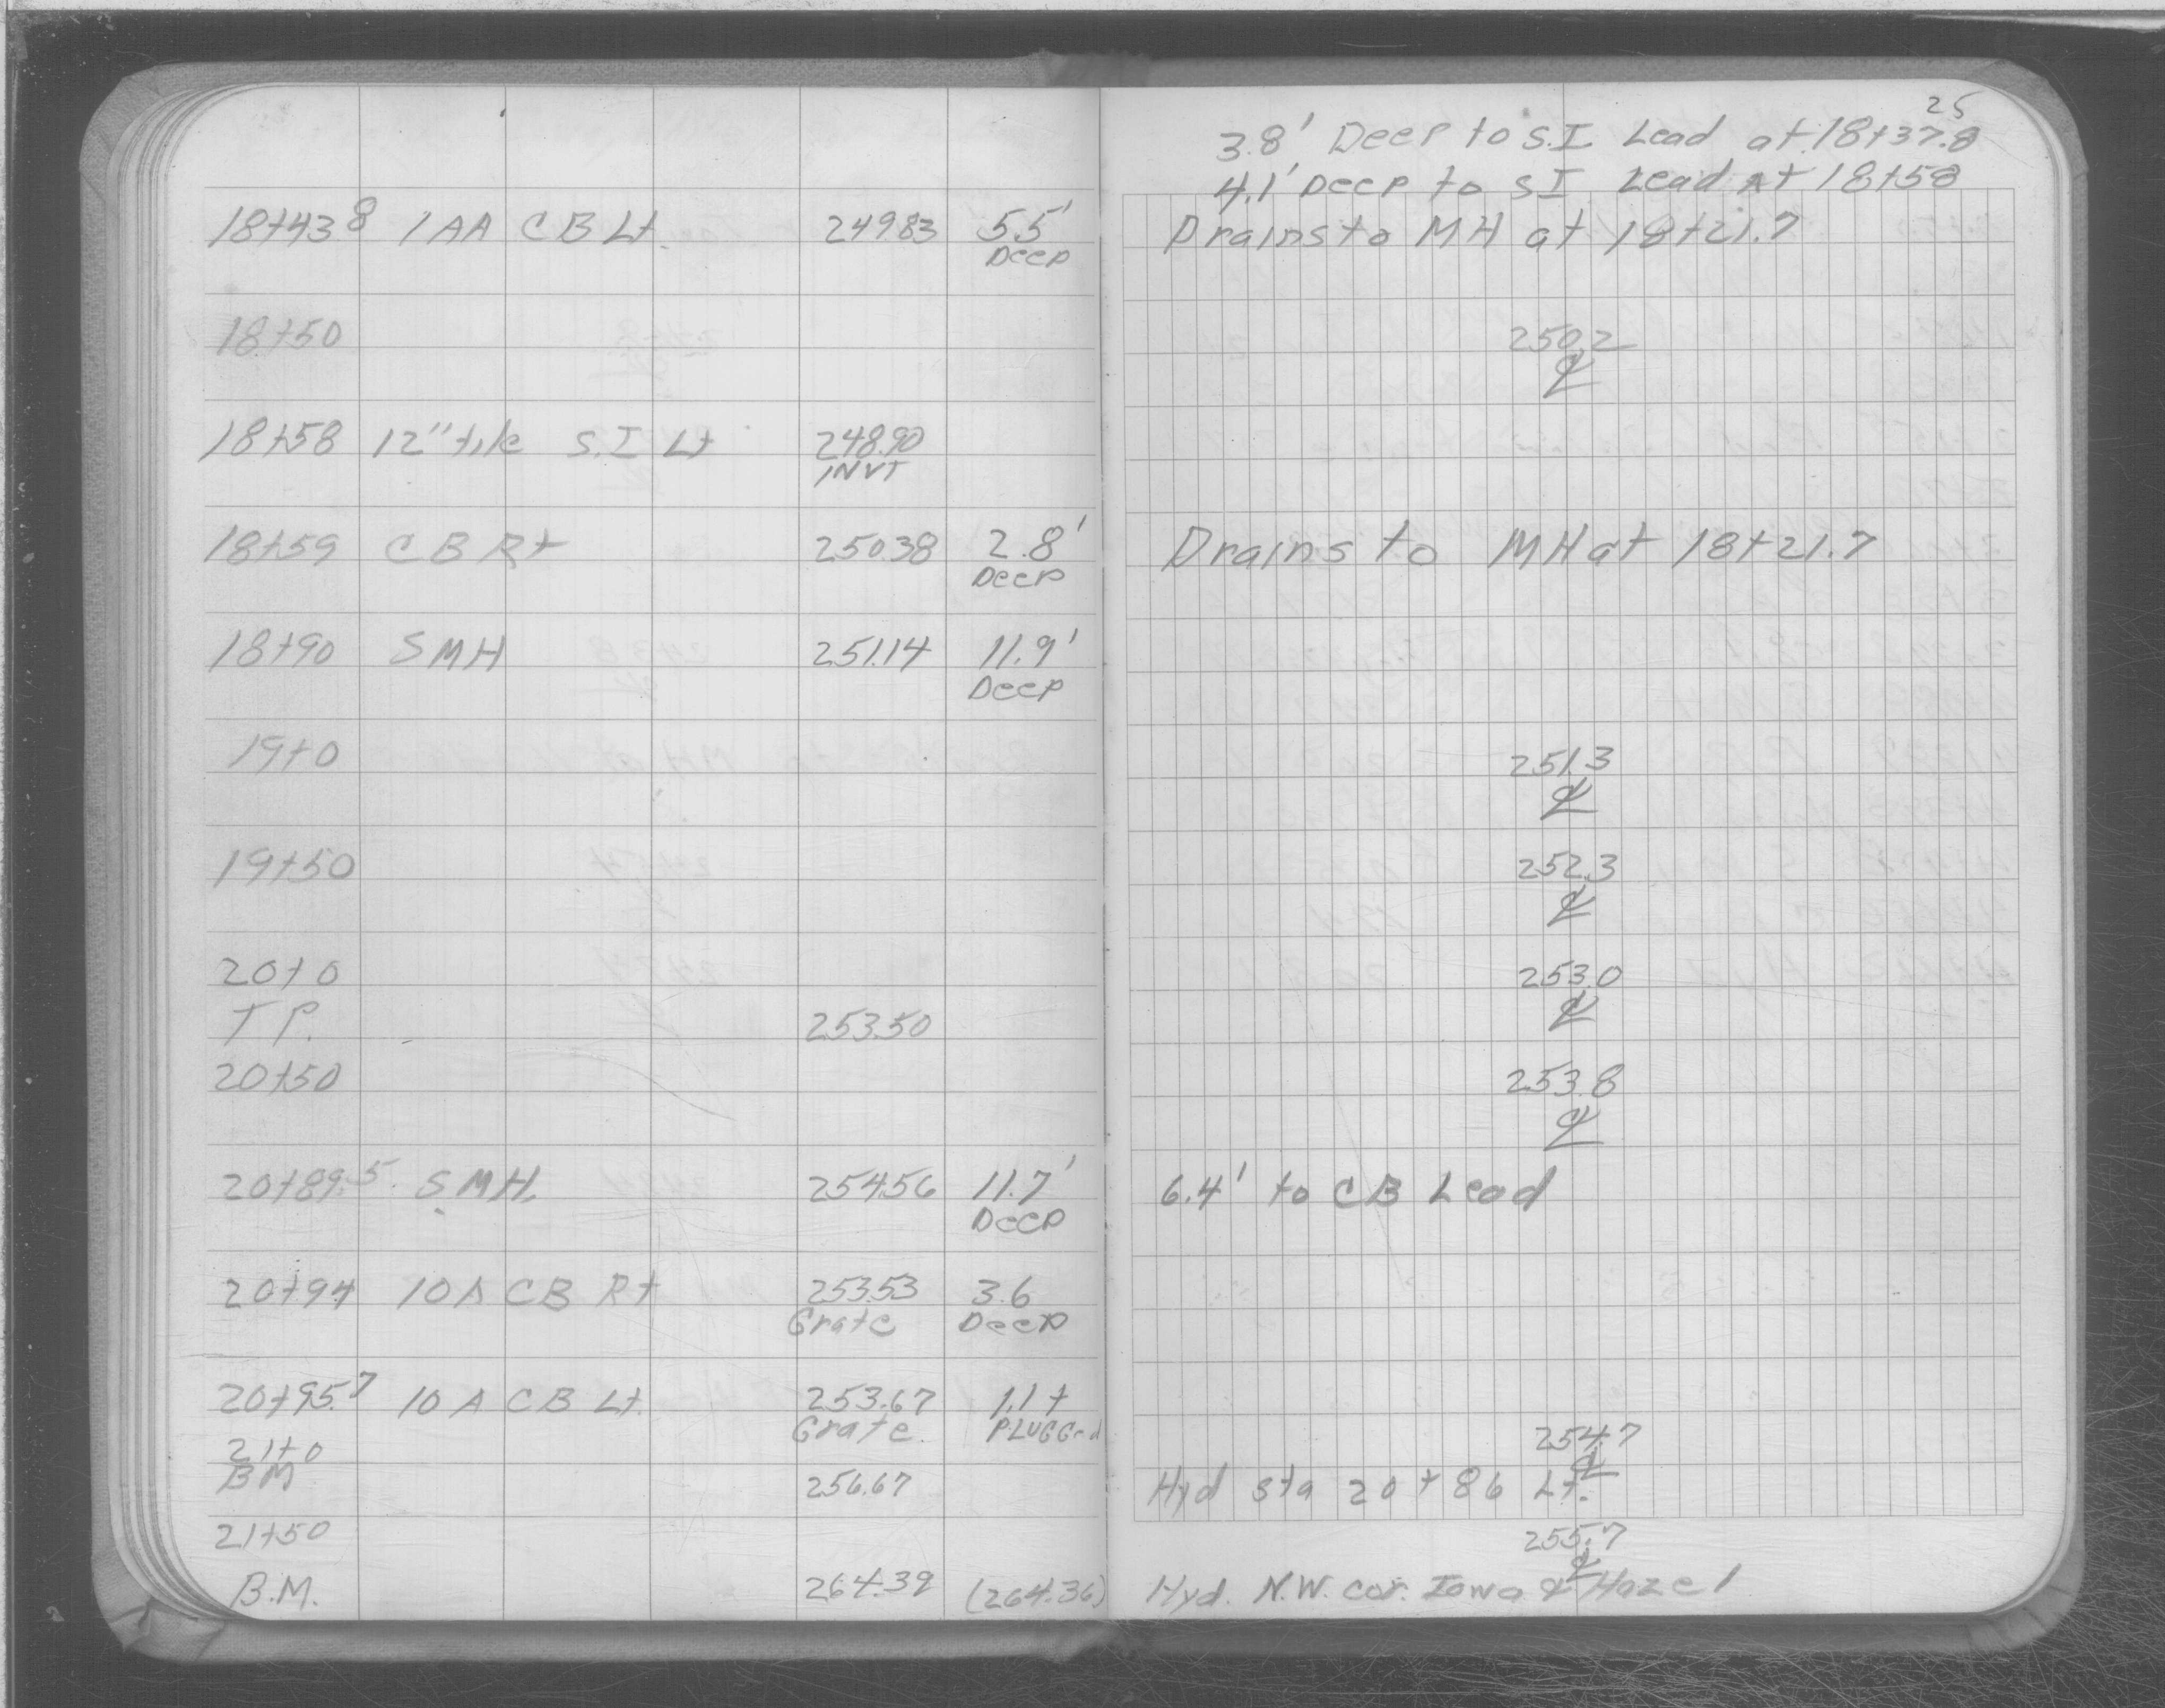 25
3.8' Deep to S.I Lead at 18+37.8
4.1' Deep to S I Lead At 18+58
18+43.8 1 AA C B Lt. 249.83 5.5' Drains to MH at 18+21.7
Deep
18+50 250.2
℄
18+58 12" tile S.I Lt 248.90
INVT
18+59 C B Rt 250.38 2.8' Drains to MH at 18+21.7
Deep
18+90 S M H 251.14 11.9'
Deep
19+0 251.3
℄
19+50 252.3
℄
20+0 253.0
℄
T P. 253.50
20+50 253.8
℄
20+89.5 S M H. 254.56 11.7' 6.4' to C B Lead
Deep
20+94 10 A C B Rt 253.53 3.6
Grate Deep
20+95.7 10 A C B Lt. 253.67 1.1 +
Grate. PLUGGed
21+0 254.7
℄
BM 256.67 Hyd sta 20+86 Lt.
21+50 255.7
℄
B.M. 264.39 (264.36) Hyd. N.W. cor. Iowa & Hazel